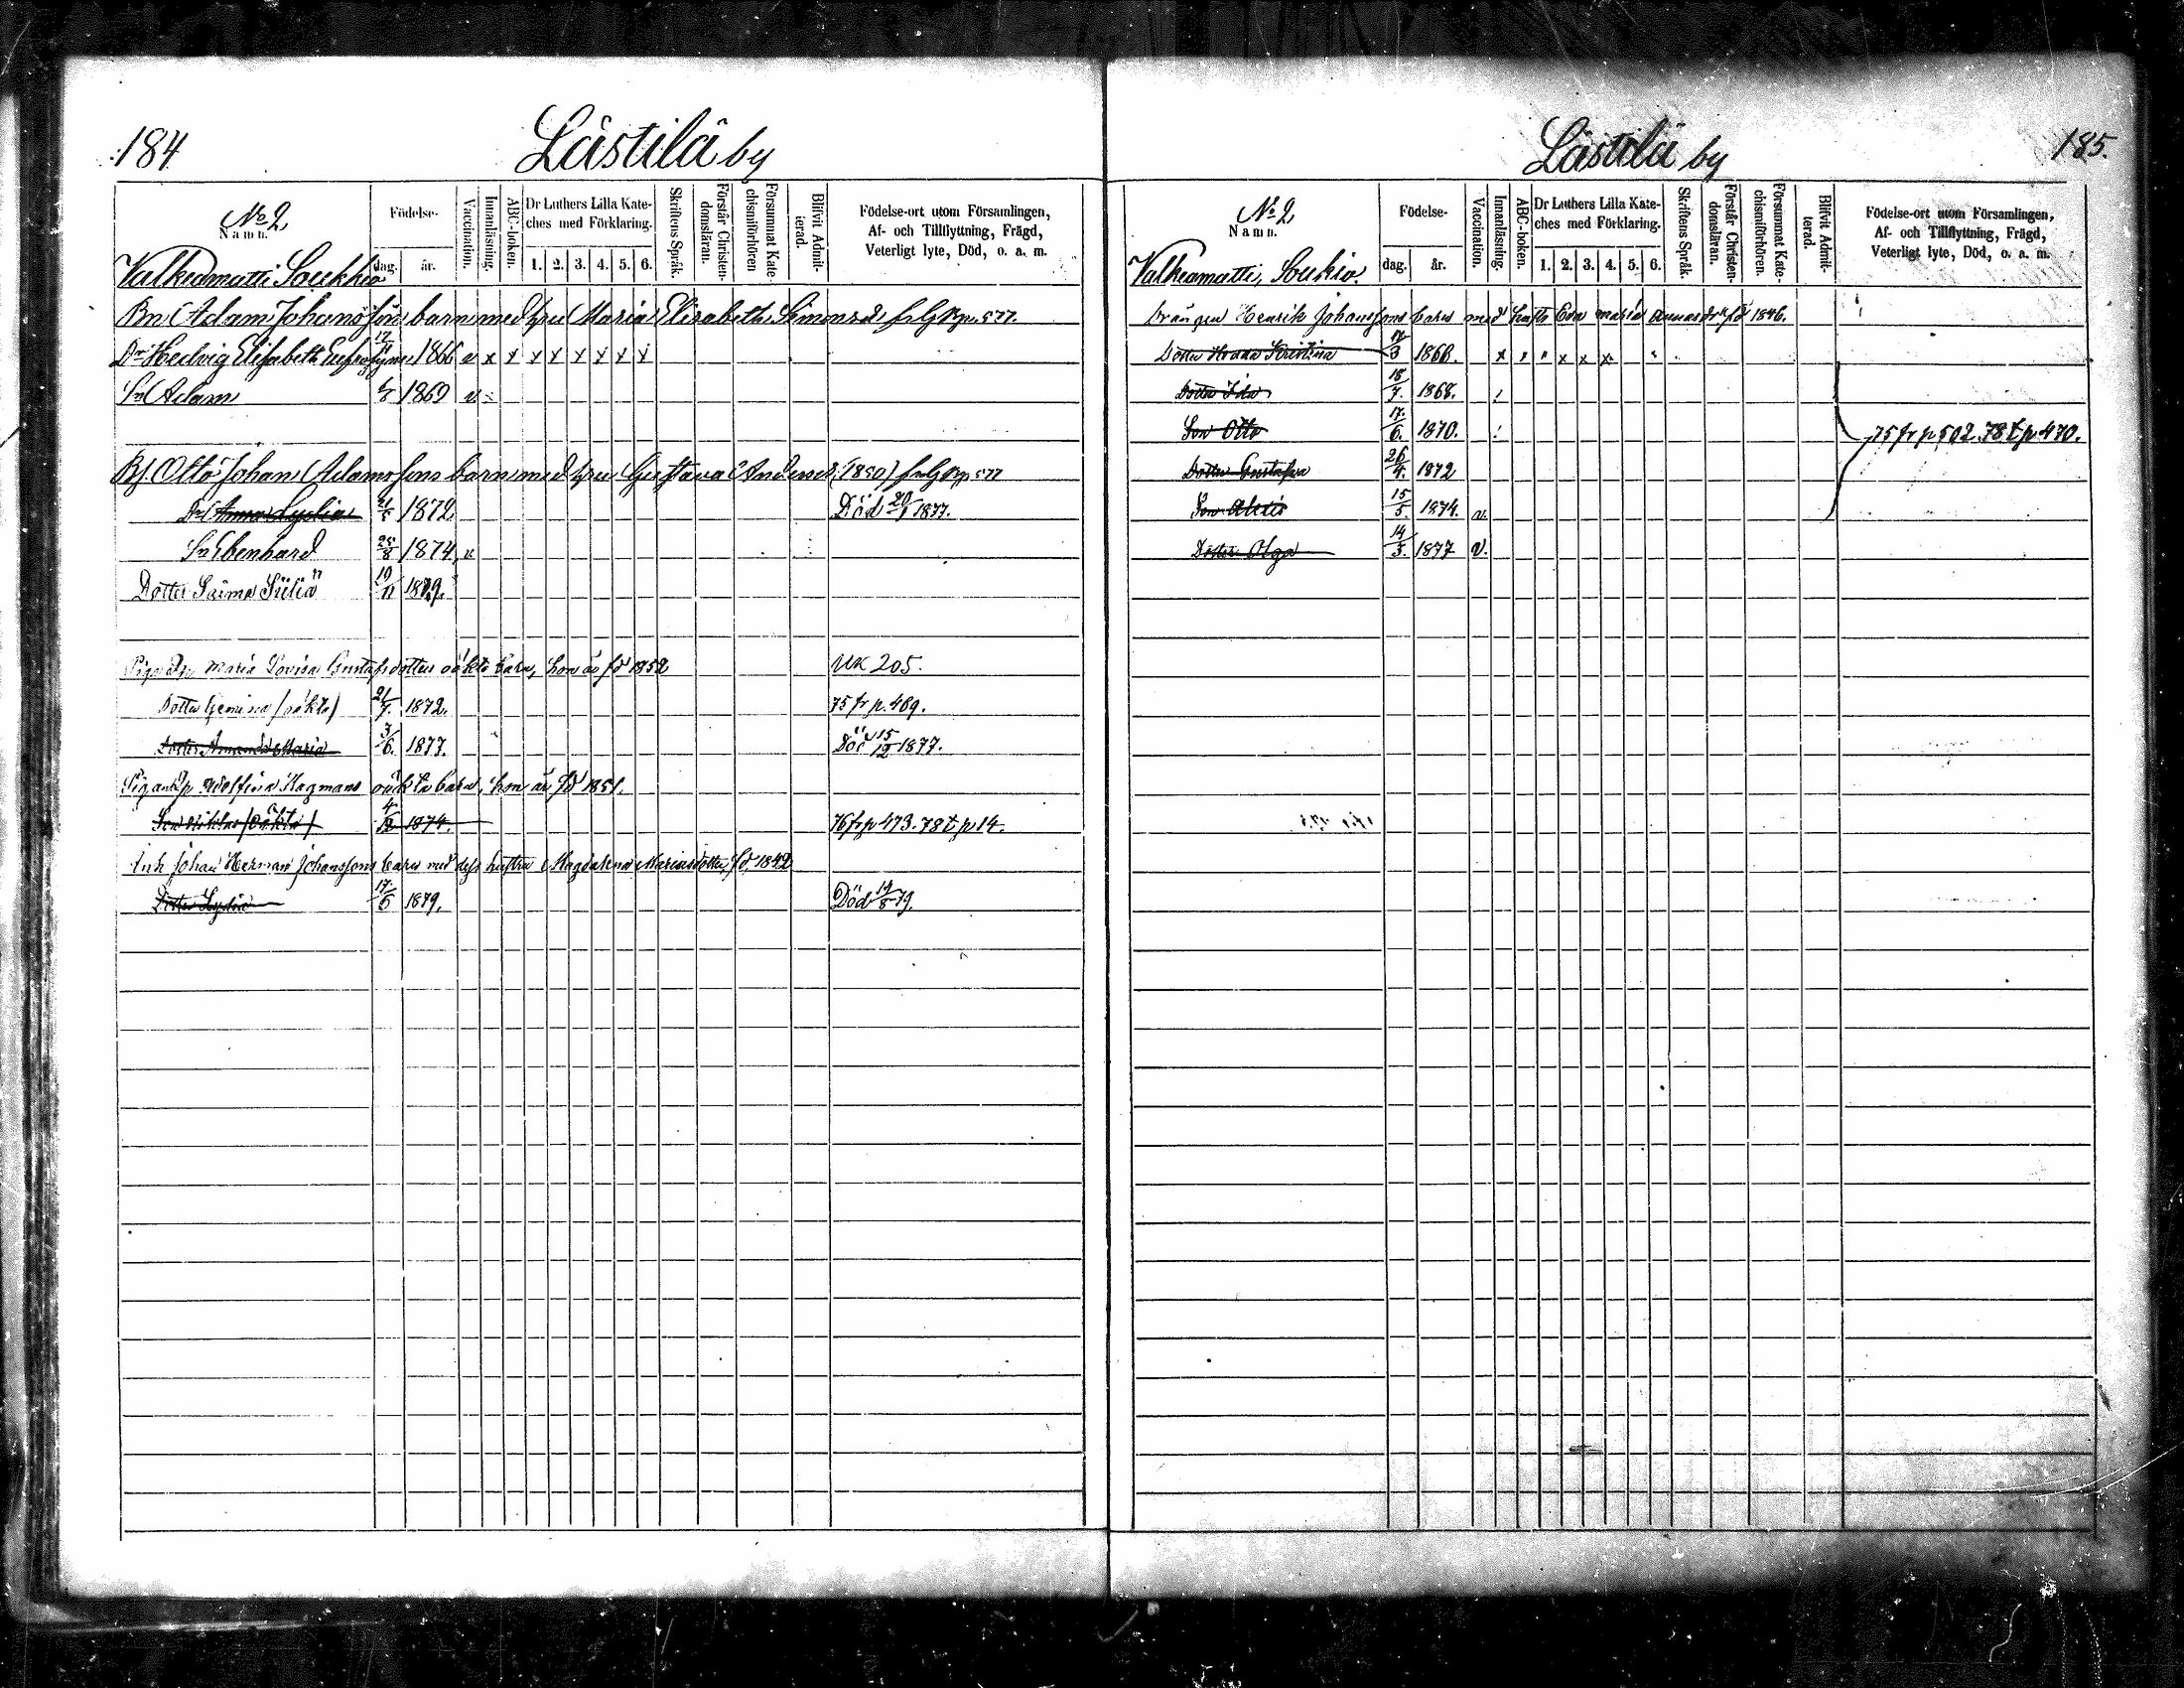 184
Lästilä by
No 2
Namn.
Födelse-
dag.
år.
Vaccination.
Innanläsning.
ABC-boken.
Dr Luthers Lilla Kate-
ches med Förklaring.
1. 2. 3. 4. 5. 6.
Skriftens Språk.
Förstår Christen-
domsläran.
Försummat Kate-
chismiförhören
Blifvit Admit-
terad.
Födelse-ort utom Församlingen,
Af- och Tillflyttning, Frägd,
Veterligt lyte, Död, o. a. m.
Valkiamatti Soukkio
Bn Adam Johans sons barn med hru Maria Elisabeth Simonsd. fr G Kp. 577.
Dr Hedvig Elisabeth 17/11 1866 v x x x x x x x x
Sn Adam 1869 v
Bf. Otto Johan Adamssons barn med hru Gustava Andersd. (1850) fr G Kp 577
Dr Anna Lydia 21/5 1872 Död 20/1 1877.
Sn Ebenhard 25/8 1874 v
Dotter Saima Siliä 19/11 1879.
Maria Lovisa Gustafsdotters oäkta barn, hon är föd 1852 UK 205.
Dotter Gemina (oäkta) 21/7. 1872. 75 fr p. 469.
Dotter Amanda Maria 3/6. 1877. Död 15/12 1877.
Pigan Adolfina Hagmans oäkta barn, hon är föd 1851.
Son (oäkta) 4/12 1874. 76 fr p 473. 78 t p 14.
Inh Johan Herman Johanssons barn med dess hustru Magdalena Mariasdotter, fd. 1842
Dotter Lydia 17/5 1879. Död 14/8 79.
Lästilä by
185.
No 2
Namn.
Födelse-
dag.
år.
Vaccination.
Innanläsning.
ABC-boken.
Dr Luthers Lilla Kate-
ches med Förklaring.
1. 2. 3. 4. 5. 6.
Skriftens Språk.
Förstår Christen-
domsläran.
Försummat Kate-
chismiförhören.
Blifvit Admit-
terad.
Födelse-ort utom Församlingen,
Af- och Tillflyttning, Frägd,
Veterligt lyte, Död, o. a. m.
Valkiamatti, Soukio.
Drängen Henrik Johanssons barn med hustr Eva Maria Annasdr föd 1846.
Dotter Kristina 1866.
Dotter Ida 18/7. 1868.
Son Otto 17/6. 1870. 75 fr p 502. 78 t p 470.
Dotter Gustafva 26/4. 1872
Son Alexis 15/5. 1874. v.
Dotter Olga 14/3. 1877 v.